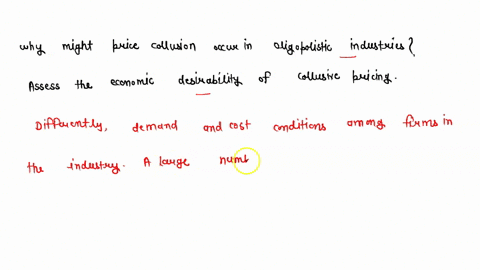 why might price collusion occur in oligopolistic industries?
Assess the economic desirability of collusive pricing.
Differently, demand and cost conditions among firms in
the industry. A large num